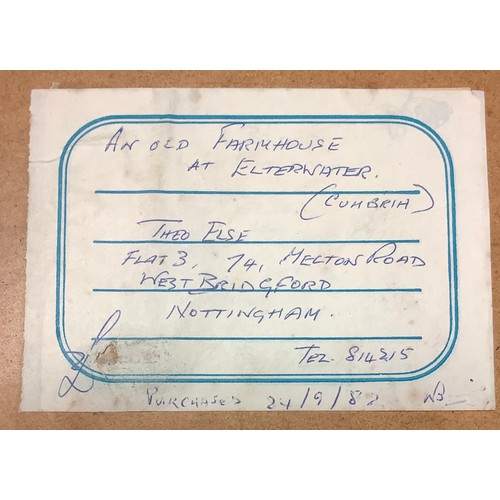 AN OLD FARMHOUSE
AT ELTERWATER.
(CUMBRIA)
THEO ELSE
FLAT 3, 74, MELTON ROAD
WEST BRIDGFORD
NOTTINGHAM.
TEL. 814215
£
PURCHASED 24/9/82 WB